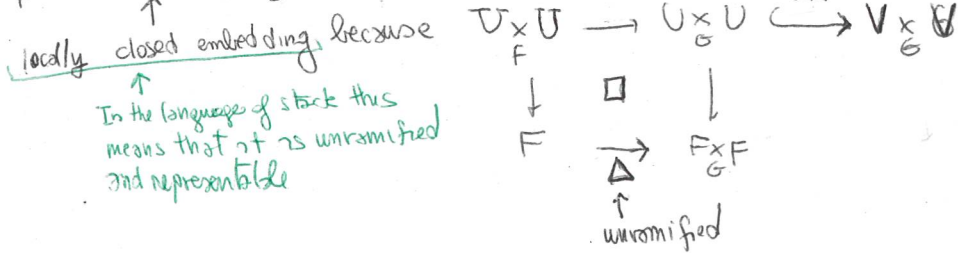 locally closed embedding, because
↑
In the language of stack this
means that it is unramified
and representable
U×U → U×U ↪ V×V
F G G
↓ □ ↓
F → F×F
Δ G
↑
unramified